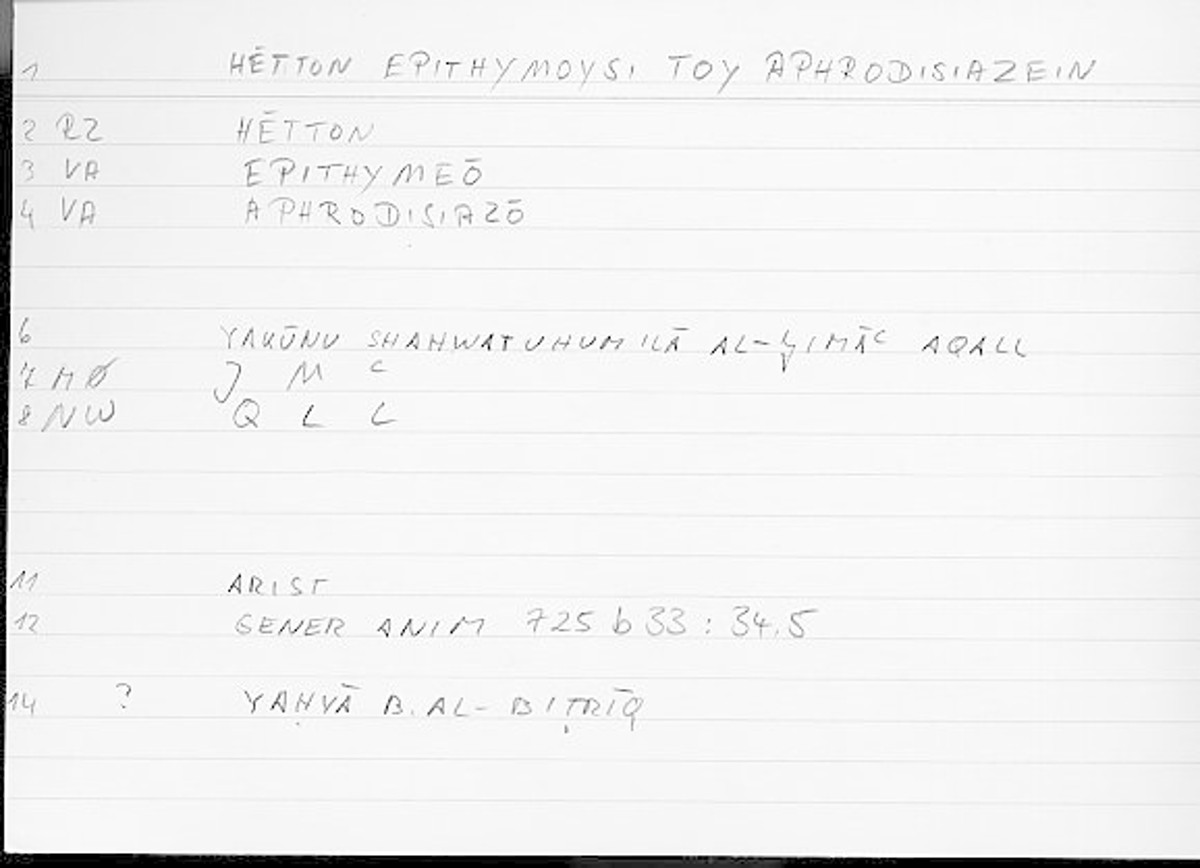 1 HĒTTON EPITHYMOYSI TOY APHRODISIAZEIN
2 RZ HĒTTON
3 VA EPITHYMEŌ
4 VA APHRODISIAZŌ
6 YAKŪNU SHAHWATUHUM ILĀ AL-ǦIMĀC AQALL
7 MØ J M C
8 NW Q L L
11 ARIST
12 GENER ANIM 725 b 33 : 34.5
14 ? YAḤYĀ B. AL-BIṬRĪQ